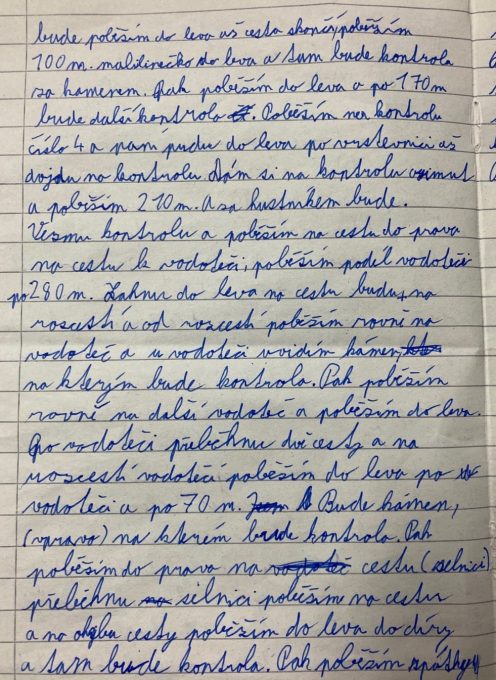 bude poběžím do leva až cesta skončí, poběžím
100 m. malilinečko do leva a tam bude kontrola
za kamenem. Pak poběžím do leva a po 170 m
bude další kontrola. Poběžím na kontrolu
číslo 4 a pamí pudu do leva po vrstevnici až
dojdu na kontrolu. Dám si na kontrolu azimut
a poběžím 210 m. A za hustníkem bude.
Vezmu kontrolu a poběžím na cestu do prava
na cestu k vodoteči, poběžím podél vodoteči
po 280 m. Zahnu do leva na cestu budu na
rozcestí a od rozcestí poběžím rovně na
vodoteč a u vodoteči uvidím kámen,
na kterým bude kontrola. Pak poběžím
rovně na další vodoteč a poběžím do leva.
Po vodoteči přeběhnu dvě cesty a na
rozcestí vodotečí poběžím do leva po
vodoteči a po 70 m. Bude kámen,
(vpravo) na kterém bude kontrola. Pak
poběžím do prava na cestu (selnici)
přeběhnu silnici poběžím na cestu
a na ohybu cesty poběžím do leva do díry
a tam bude kontrola. Pak poběžím zpátky